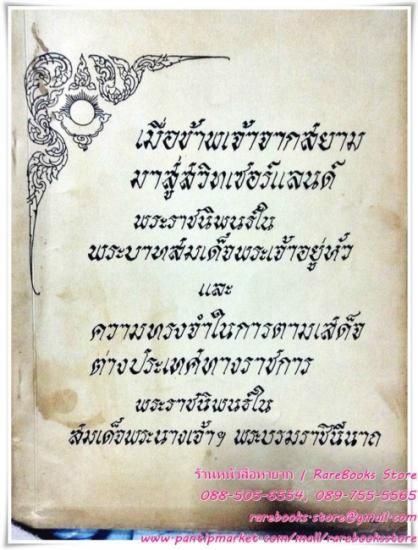 เมื่อข้าพเจ้าจากสยาม
มาสู่สวิทเซอร์แลนด์
พระราชนิพนธ์ใน
พระบาทสมเด็จพระเจ้าอยู่หัว
และ
ความทรงจำในการตามเสด็จ
ต่างประเทศทางราชการ
พระราชนิพนธ์ใน
สมเด็จพระนางเจ้าฯ พระบรมราชินีนาถ
ร้านหนังสือหายาก / RareBooks Store
088-505-6554, 089-755-5565
rarebooks.store@gmail.com
www.pantipmarket.com/mall/rarebooksstore